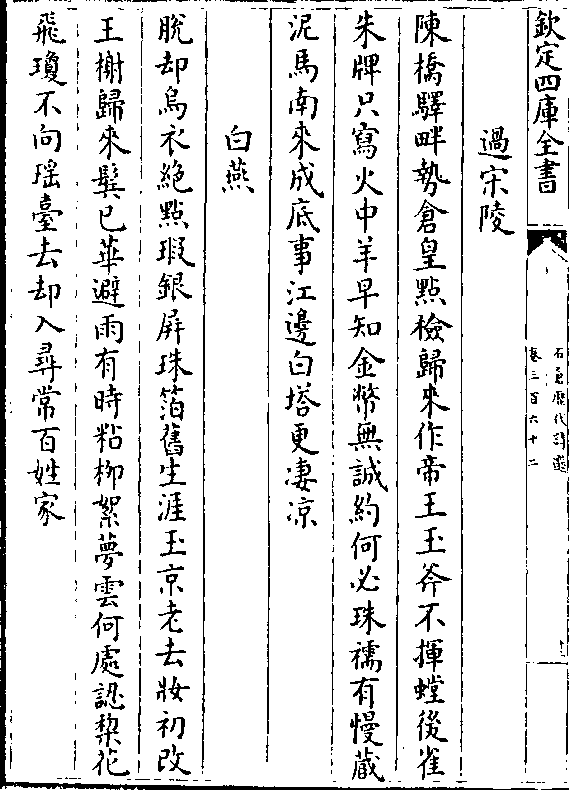 欽定四庫全書
石倉歷代詩選
卷三百六十二
過宋陵
陳橋驛畔勢倉皇點檢歸來作帝王玉斧不揮螳後雀
朱牌只寫火中羊早知金幣無誠約何必珠襦有慢藏
泥馬南來成底事江邊白塔更凄涼
白燕
脫却烏衣絶點瑕銀屏珠箔舊生涯玉京老去妝初改
王榭歸來鬓已華避雨有時粘柳絮夢雲何處認梨花
飛瓊不向瑶臺去却入尋常百姓家